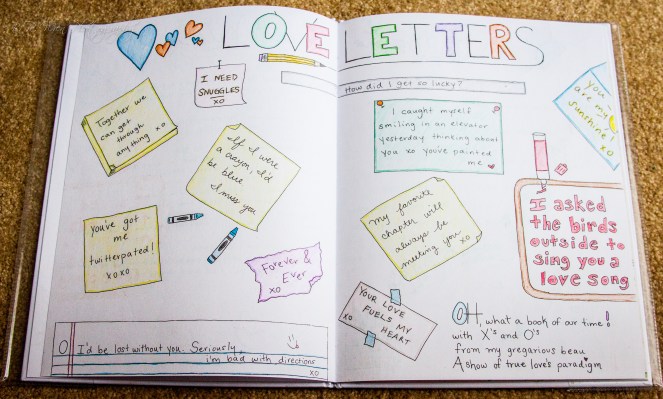 LOVE LETTERS
I NEED
SNUGGLES
xo
Together we
can get
through
anything xo
If I were
a crayon, I'd
be blue
I miss you
You've got
me
twitterpated!
xoxo
Forever &
Ever
xo
I'd be lost without you. Seriously,
i'm bad with directions
xo
How did I get so lucky?
I caught myself
smiling in an elevator
yesterday thinking about
you xo you've painted
me
You
are my
sunshine
My favorite
chapter will
always be
meeting you
xo
I asked
the birds
outside to
sing you a
love song
YOUR LOVE
FUELS MY
HEART
xo
OH, what a book of our time!
with X's and O's
from my gregarious beau
A show of true love's paradigm